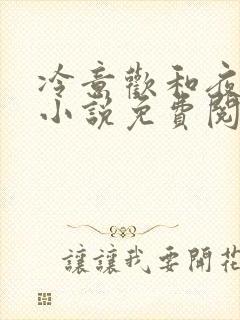 冷意歡和夜
小說免費閱
讓讓我要開花